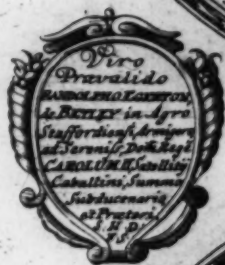 Viro
Prævalido
RANDOLPHO EGERTON,
de BETLEY in Agro
Staffordiensi, Armigero
ad Sereniss. Dom. Regē
CAROLUM II. Satellitij
Caballini, Summo
Subducenario
et Prætori
S H D